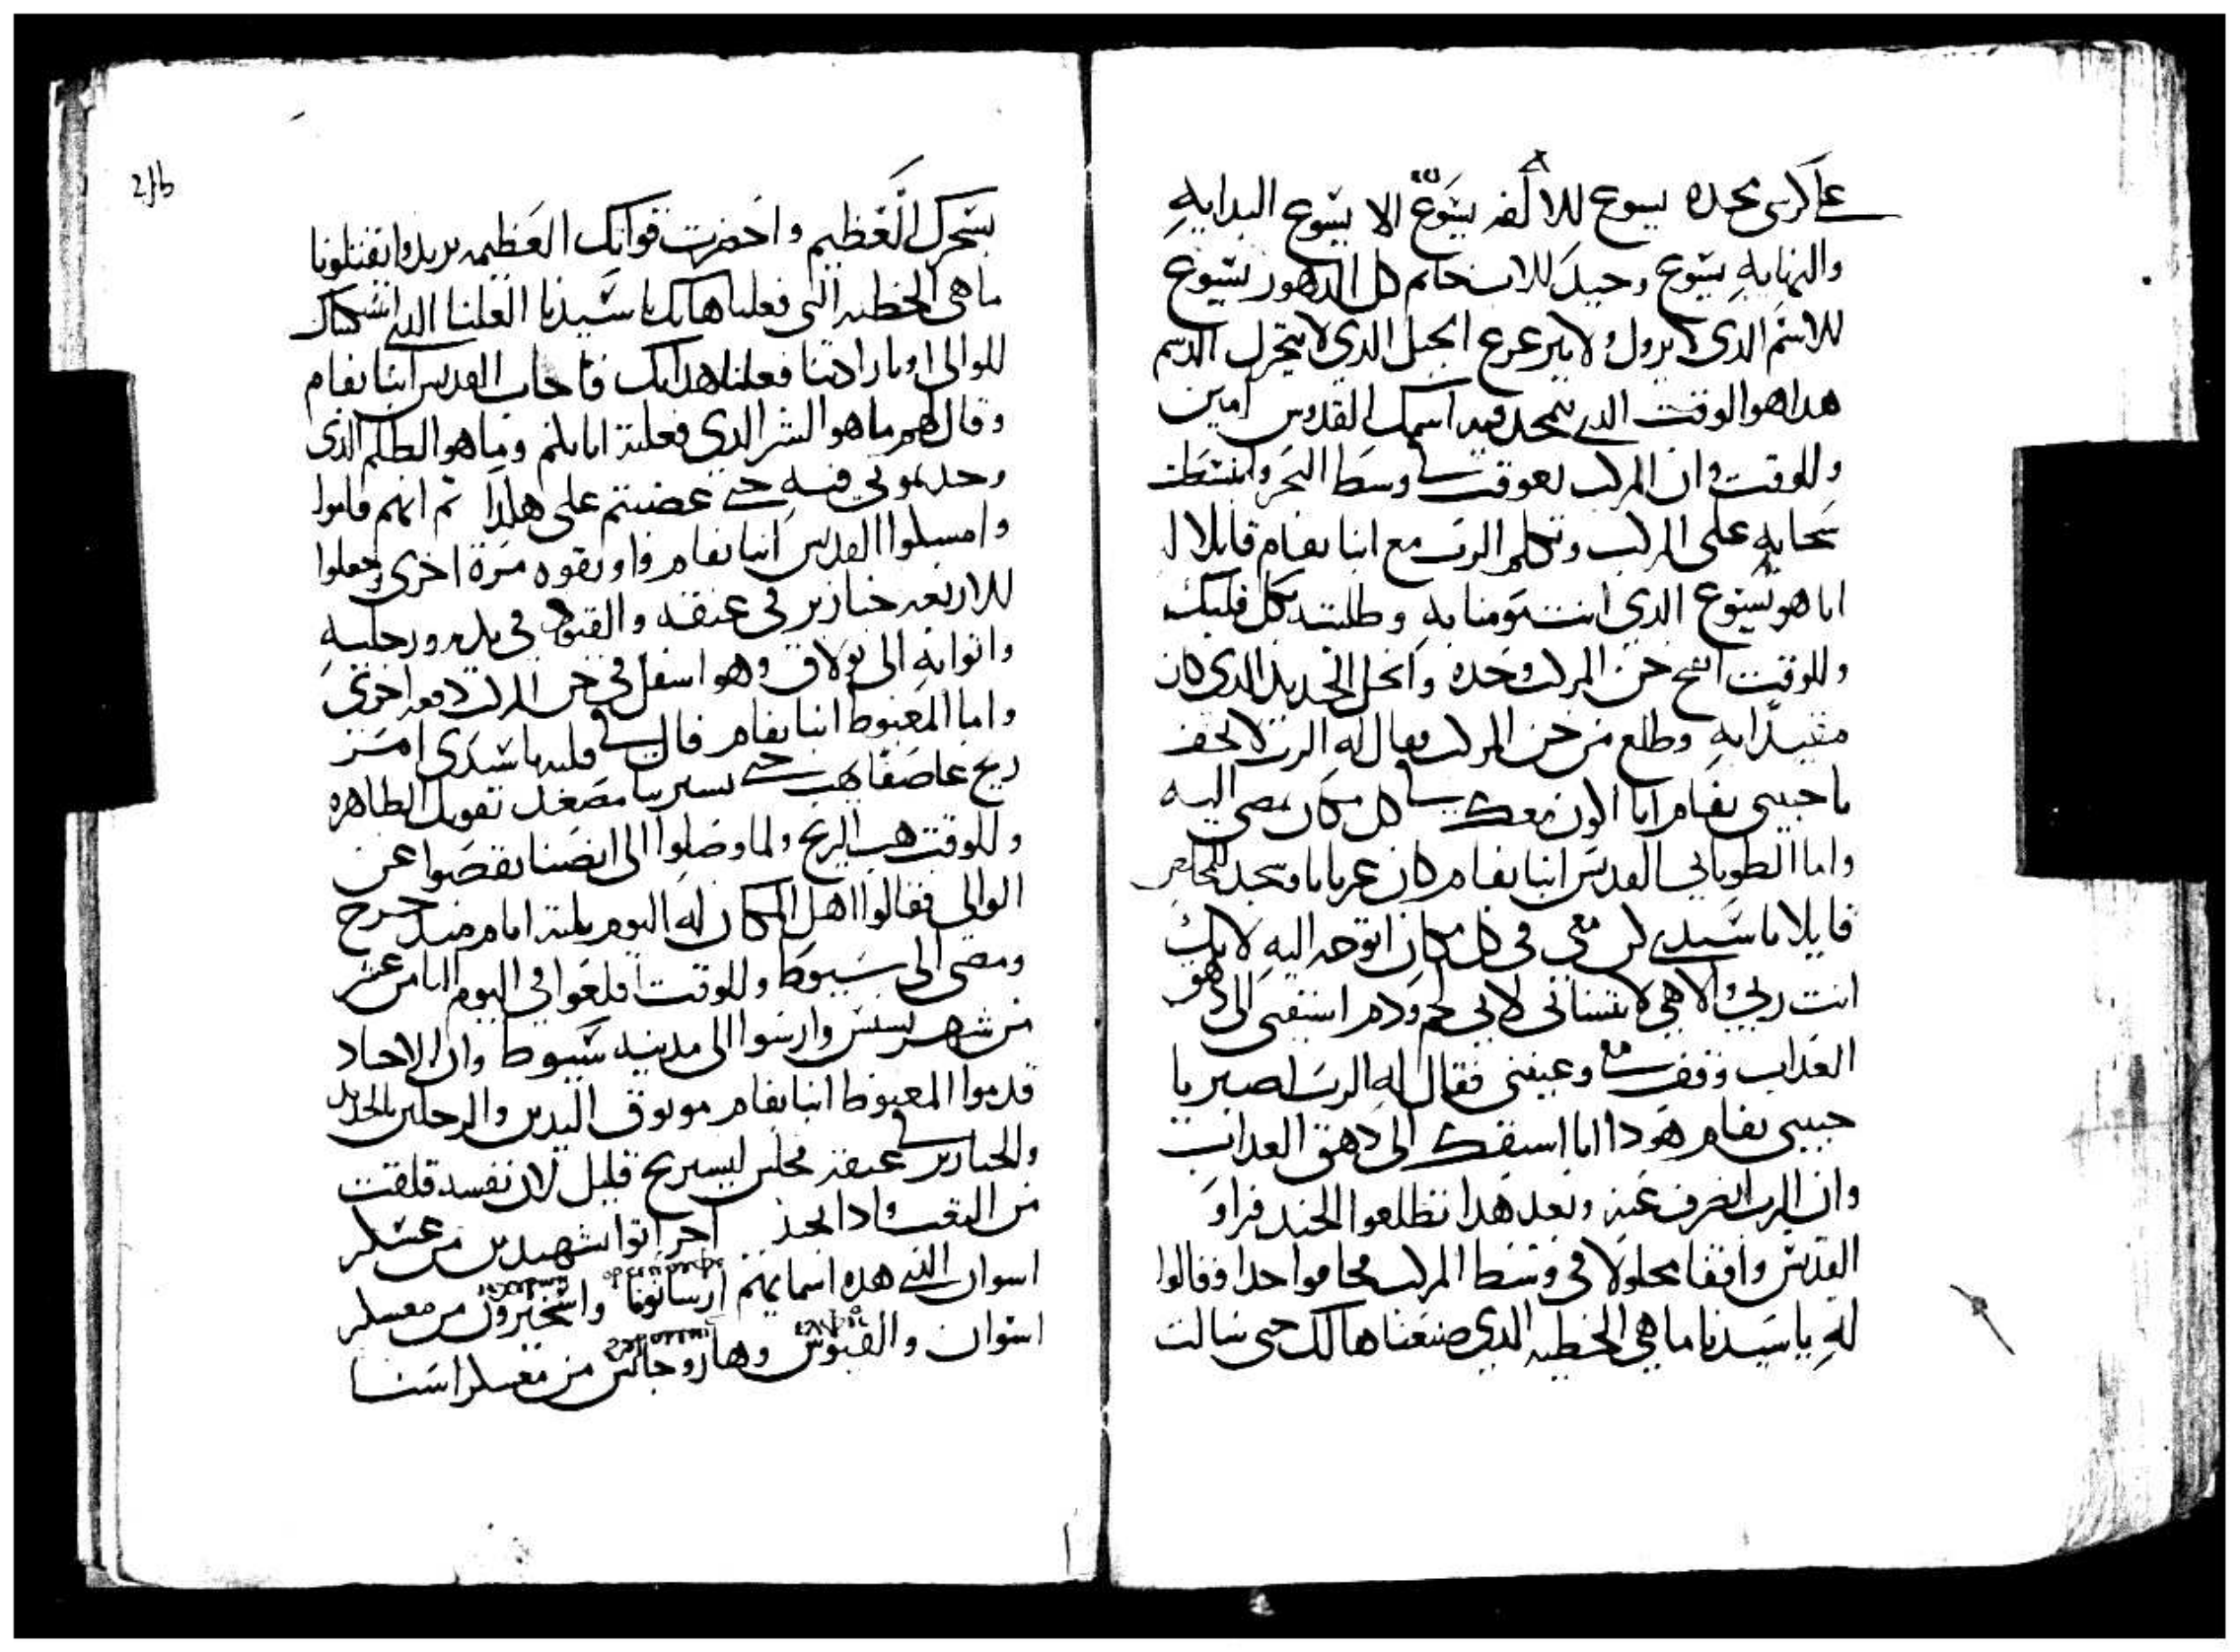 على كرسي مجده يسوع للالفه يسوع الا يسوع البدايه
والنهايه يسوع وحيد للاب خاتم كل الدهور يسوع
للاسم الدى لا يزول ولا يتزعزع الجبل الدي لا يتحرك الدسم
هدا هو الوقت الدي يتمجد فيه اسمك القدوس امين
وللوقت وان المركب تعوقت في وسط البحر وانبسطت
سحابه على المركب وتكلم الرب مع انبا بفام قايلا له
انا هو يسوع الدي انت تومنا به وطلبته بكل قلبك
وللوقت انفتح خن المركب وحده وانحل الحديد الدي كان
مقيدا به وطلع من خن المركب وقال له الرب لا تخف
يا حبيبي بفام انا اكون معك في كل مكان تمضي اليه
واما الطوباني القديس انبا بفام كان عريانا وسجد للمخلص
قايلا يا سيدي كن معي في كل مكان اتوجه اليه لانك
انت ربي والاهي لا تنساني لاني لحم ودم اسبقني الى دهق
العداب وقف معي وعينني فقال له الرب اصبر يا
حبيبي بفام هودا انا اسبقك الى دهق العداب
وان الرب انصرف عنه وبعد هدا تطلعوا الجند فراو
القديس واقفا محلولا في وسط المركب فخافوا جدا وقالوا
له يا سيدنا ما هي الخطيه الدي صنعناها لك حتى سالت
بسحرك العظيم واحضرت قواتك العظيمه يريدوا يقتلونا
ما هي الخطيه التي فعلناها بك يا سيدنا العلنا الدي اشكيناك
للوالي او بارادتنا فعلنا هدا بك فاجاب القديس انبا بفام
وقال لهم ما هو الشر الدي فعلته انا بكم وما هو الظلم الدى
وجدتموني فيه حتى غضبتم على هكدا ثم انهم قاموا
وامسكوا القديس انبا بفام واوتقوه مرة اخرى وجعلوا
للاربعه خنازير في عنقه والقيود في يديه ورجليه
واتوا به الى بولاق وهو اسفل في خن المركب دفعه اخرى
واما المغبوط انبا بفام قال في قلبه يا سيدى امر
ريح عاصفا يهب حتى يسير بنا مصعد بقوتك الطاهره
وللوقت هب الريح ولما وصلوا الى انصنا يفحصوا عن
الوالى فقالوا اهل المكان له اليوم تلته ايام منذ خرج
ومضى الى سيوط وللوقت اقلعوا في اليوم التامن عشر
من شهر بسنس وارسوا الى مدينه سيوط وان الاجناد
قدموا المغبوط انبا بفام موتوق اليدين والرجلين بالحديد
والخنازير في عنقه فجلس ليستريح قليل لان نفسه قلقت
من التعب وادا بجند اخر اتوا بشهيدين من عسكر
اسوان الدي هده اسمايهم ارسانوفا واسخيرون من معسكر
اسوان والقبوس وهاروجاس من معسكر اسنا